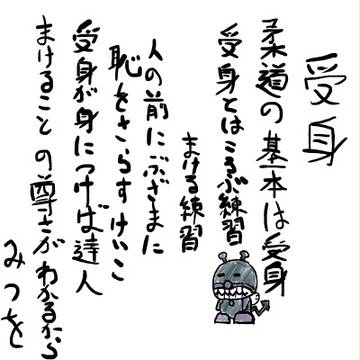 受身
柔道の基本は受身
受身とはころぶ練習
まける練習
人の前にぶざまに
恥をさらすけいこ
受身が身につけば達人
まけることの尊さがわかるから
みつを